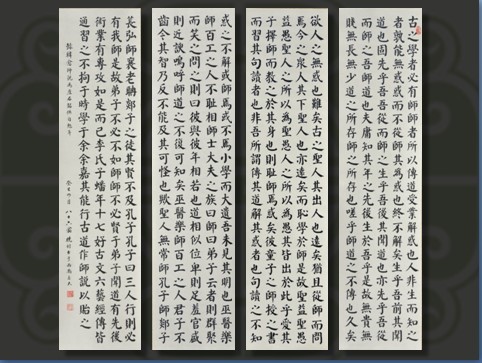 古之學者必有師師者所以傳道受業解惑也人非生而知之
者孰能無惑惑而不從師其為惑也終不解矣生乎吾前其聞
道也固先乎吾吾從而師之生乎吾後其聞道也亦先乎吾吾從
而師之吾師道也夫庸知其年之先後生於吾乎是故無貴無
賤無長無少道之所存師之所存也嗟乎師道之不傳也久矣
欲人之無惑也難矣古之聖人其出人也遠矣猶且從師而問
焉今之衆人其下聖人也亦遠矣而恥學於師是故聖益聖愚
益愚聖人之所以為聖愚人之所以為愚其皆出於此乎愛其
子擇師而教之於其身也則恥師焉惑矣彼童子之師授之書
而習其句讀者也非吾所謂傳其道解其惑者也句讀之不知
惑之不解或師焉或不焉小學而大遺吾未見其明也巫醫樂
師百工之人不恥相師士大夫之族曰師曰弟子云者則群聚
而笑之問之則曰彼與彼年相若也道相似也位卑則足羞官盛
則近諛嗚呼師道之不復可知矣巫醫樂師百工之人君子不
齒今其智乃反不能及其可怪也歟聖人無常師孔子師郯子
萇弘師襄老聃郯子之徒其賢不及孔子孔子曰三人行則必
有我師是故弟子不必不如師師不必賢于弟子聞道有先後
術業有專攻如是而已李氏子蟠年十七好古文六藝經傳皆
通習之不拘于時學于余余嘉其能行古道作師說以貽之